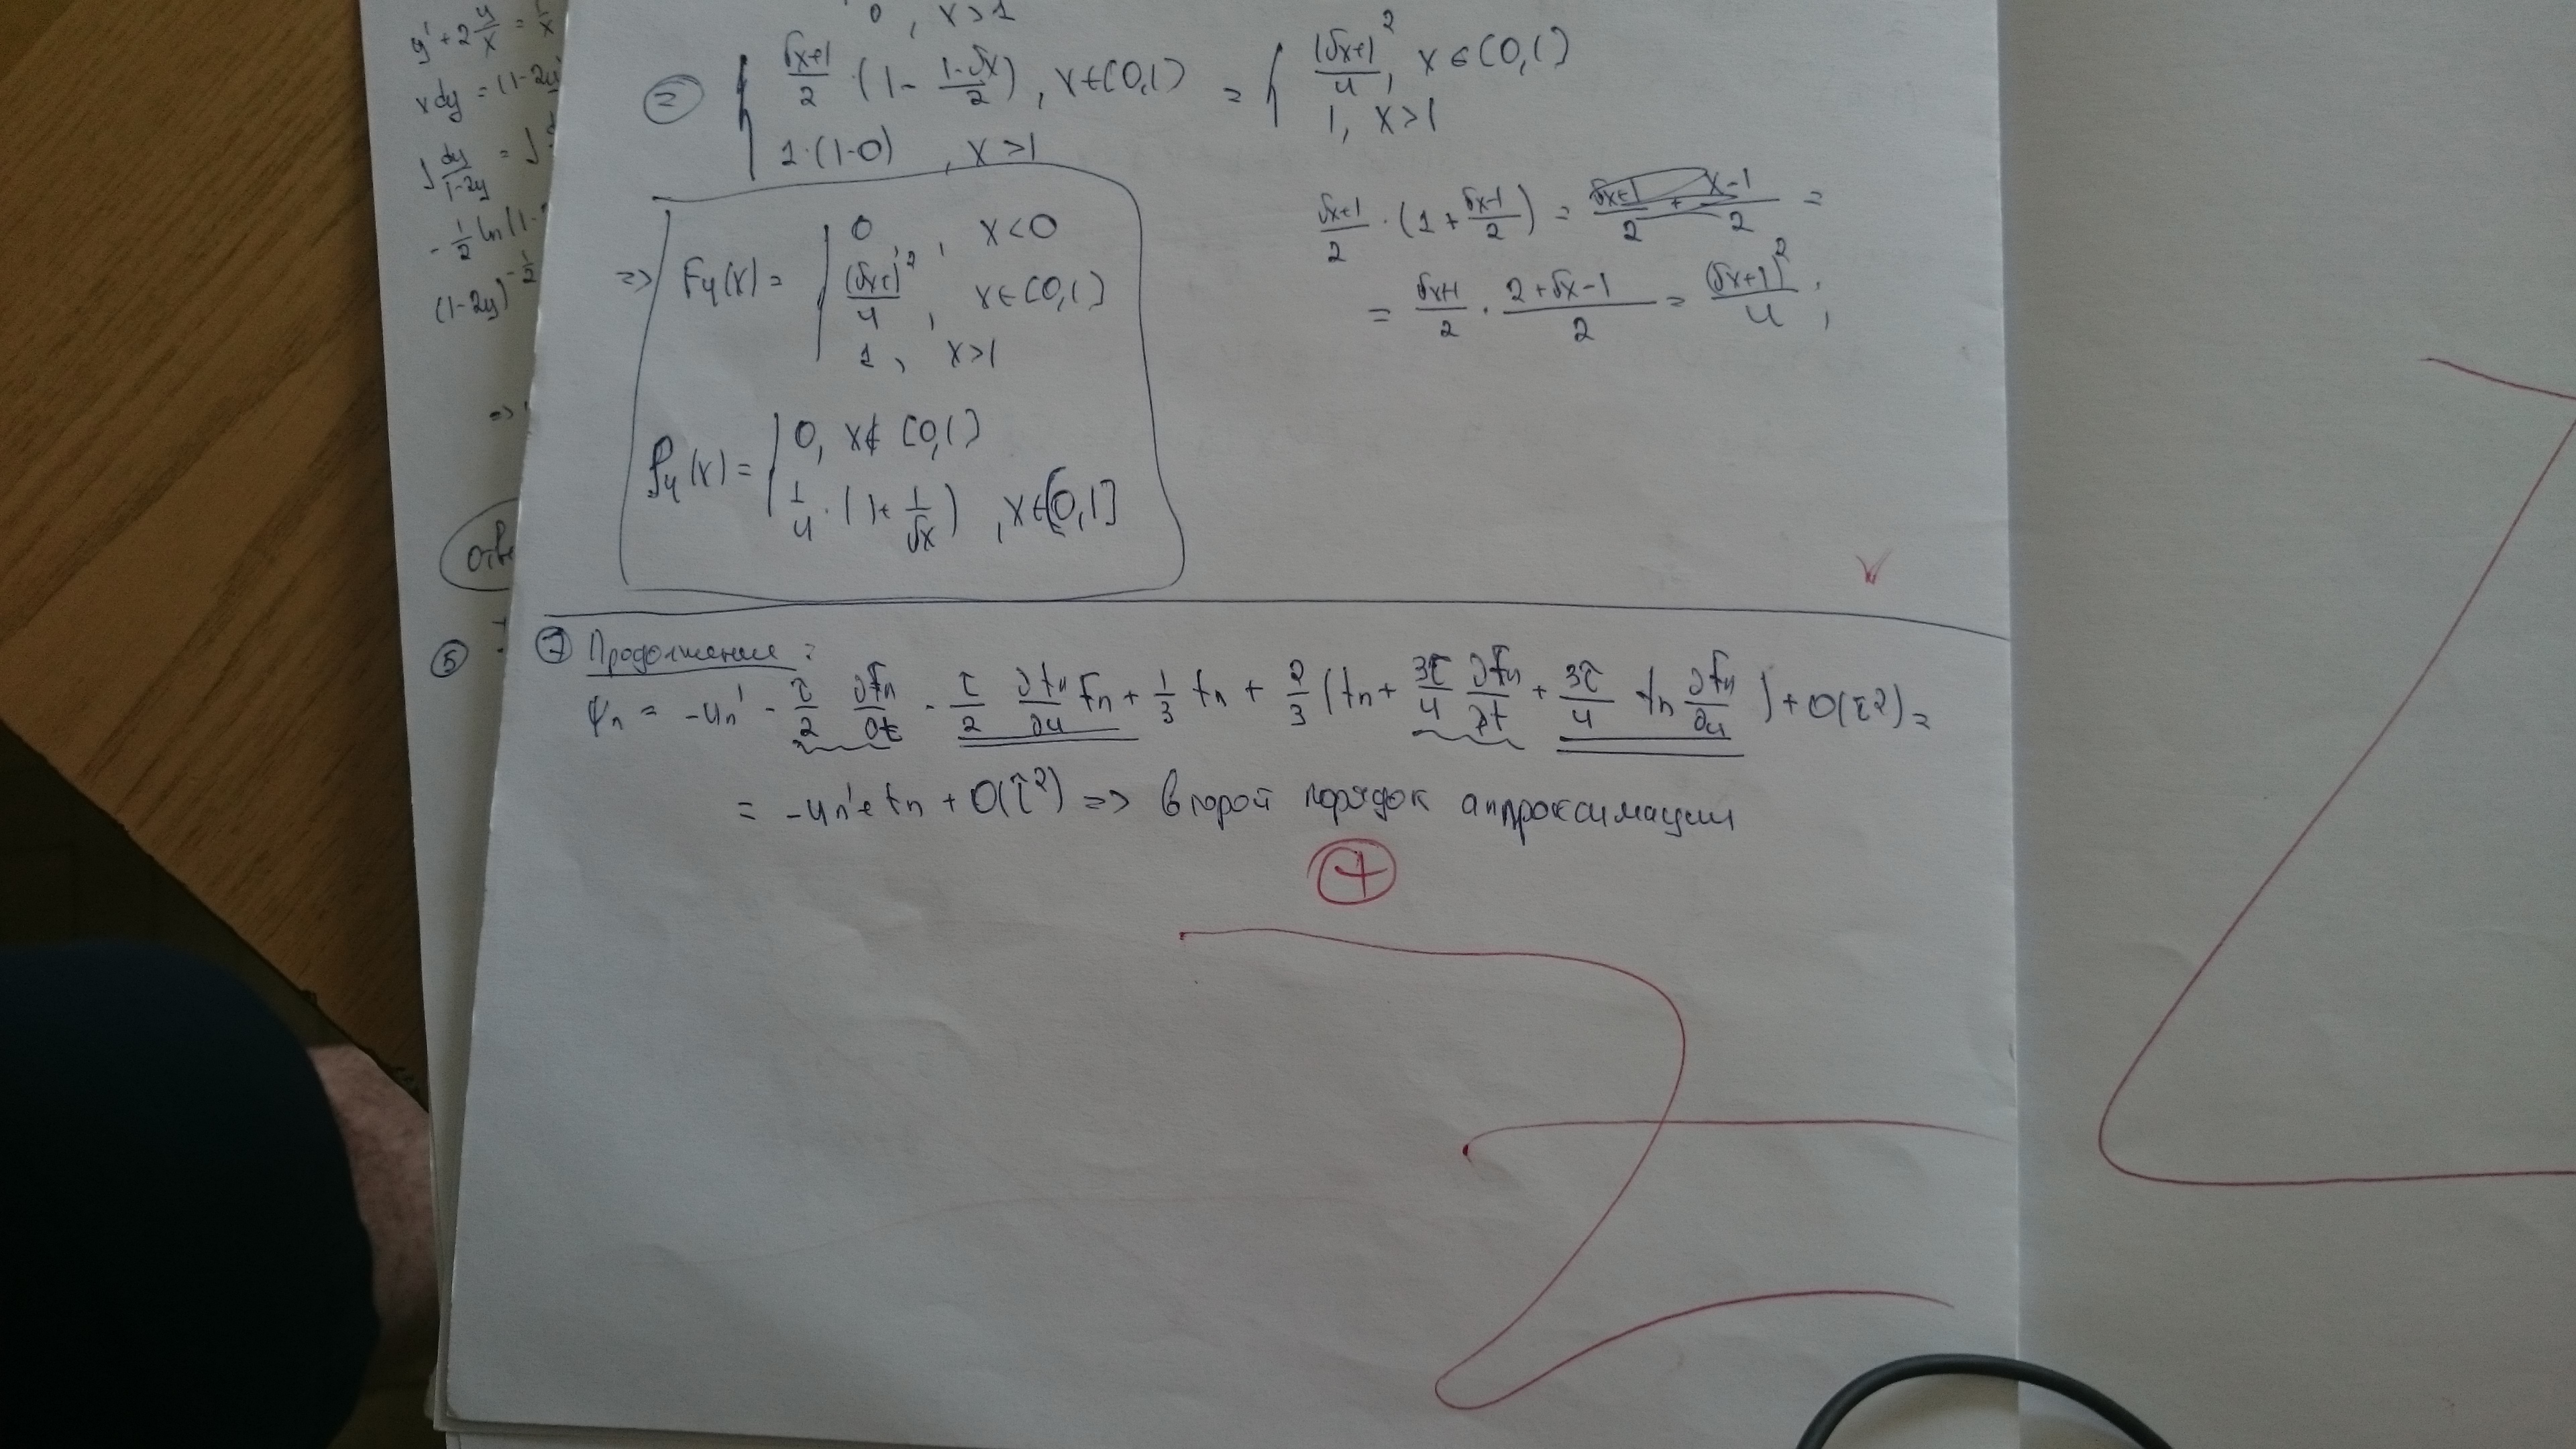 y' + 2 y/x = 1/x
x dy = (1-2y)
∫ dy/(1-2y) = ∫
-1/2 ln(1-
(1-2y)^(-1/2)
=>
⑤
0, x>1
= { (√x+1)/2 · (1 - (1-√x)/2), x∈[0,1] = { (√x+1)²/4, x∈[0,1]
1·(1-0), x>1    1, x>1
(√x+1)/2 · (1 + (√x-1)/2) =
= (√x+1)/2 · (2+√x-1)/2 = (√x+1)²/4 ;
=> F₄(x) = { 0, x<0
(√x+1)²/4, x∈[0,1]
1, x>1
ρ₄(x) = { 0, x∉[0,1]
1/4 · (1+ 1/√x), x∈[0,1]
⑦ Продолжение:
ψn = -un' - τ/2 ∂fn/∂t - τ/2 ∂fn/∂u fn + 1/3 fn + 2/3 (fn + 3τ/4 ∂fn/∂t + 3τ/4 fn ∂fn/∂u) + O(τ²) =
= -un' + fn + O(τ²) => второй порядок аппроксимации
+